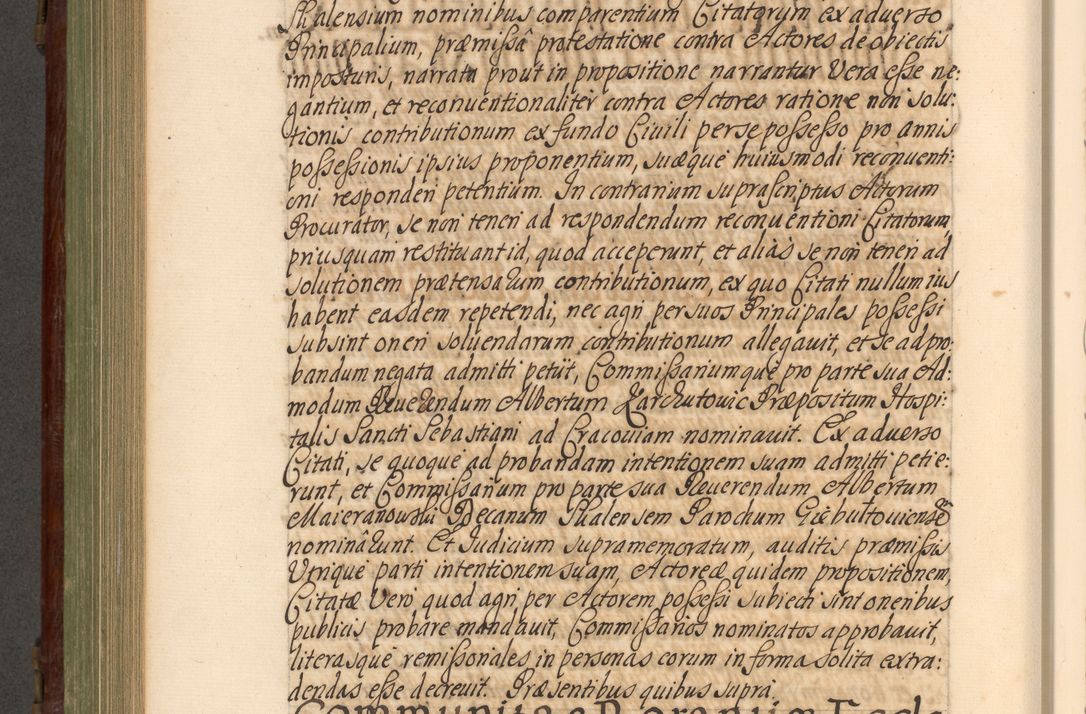 Skalensium nominibus comparentium Citatorum ex aduerso
Principalium, præmissâ protestatione contra Actores de obiectis
imposturis, narrata prout in propositione narrantur Vera esse ne:
gantium, et reconuentionaliter contra Actores ratione non solu:
tionis contributionum ex fundo Ciuili per se possesso pro annis
possessionis ipsius proponentium, suæque huiusmodi reconuenti:
oni responderi petentium. In contrarium suprascriptus Actorum
Procurator, se non teneri ad respondendum reconuentioni Citatorum,
priusquam restituant id, quod acceperunt, et aliàs se non teneri ad
solutionem prætensarum contributionum, ex quo Citati nullum ius
habent easdem repetendi, nec agri per suos Principales possessi
subsint oneri soluendarum contributionum allegauit, et se ad pro:
bandum negata admitti petiit, Commissariumque pro parte sua Ad:
modum Reuerendum Albertum Karchutowic Præpositum Hospi:
talis Sancti Sebastiani ad Cracouiam nominauit. Ex aduerso
Citati, se quoque ad probandam intentionem suam admitti petie:
runt, et Commissarium pro parte sua Reuerendum Albertum
Maieranowski Decanum Skalensem Parochum Giebultouiensẽ
nominârunt. Et Iudicium supramemoratum, auditis præmissis
Vtrique parti intentionem suam, Actoreæ quidem propositionem,
Citatæ Verò quod agri per Actorem possessi subiecti sint oneribus
publicis probare mandauit, Commissarios nominatos approbauit,
literasque remissoriales in personas eorum in forma solita extra:
dendas esse decreuit. Præsentibus quibus suprà.